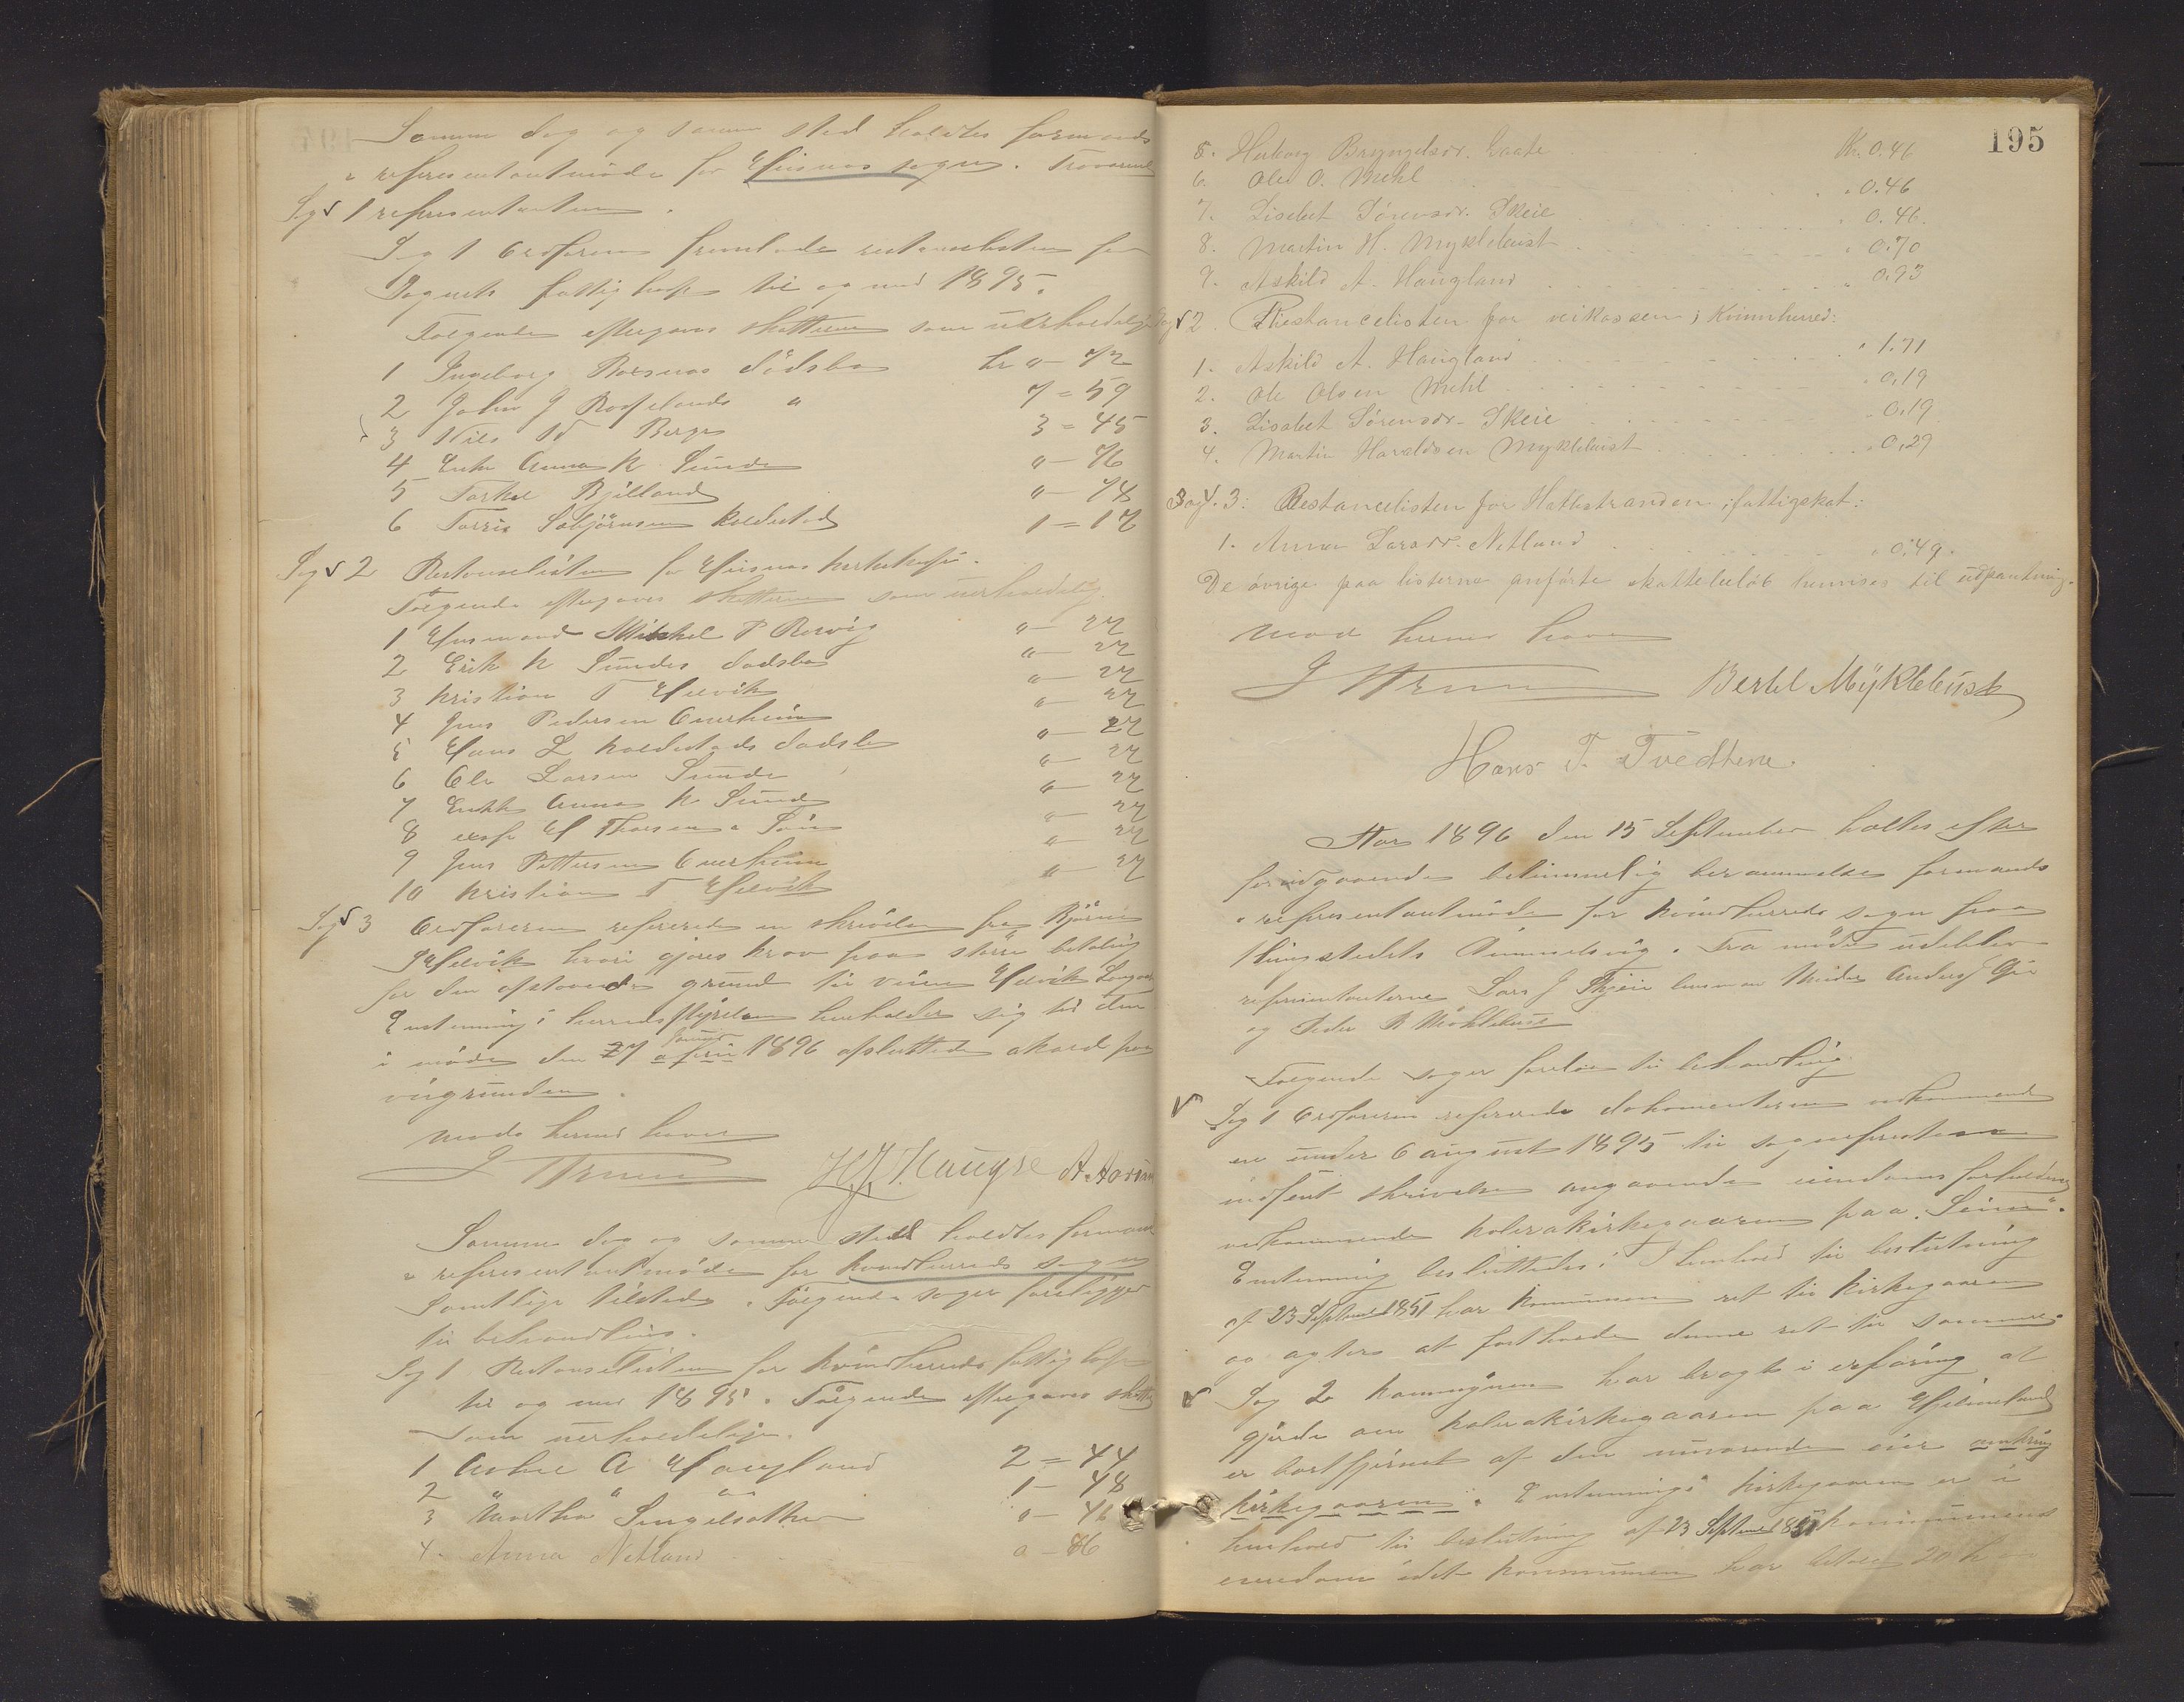 Samme dag og samme sted holdtes formands
& repræsentantmöde for Husnes sogn. Fraværende
1 repræsentanten.
Sag 1 Ordføreren fremlagde restancelisten for
Sognets fattigkasse til og med 1895.
Følgende eftergaves skatterne som uerholdelige Sag
1 Ingeborg Røsnæs dödsbo kr " - 72
2 John J Røsselands " 7 = 59
3 Nils Berge 3 = 45
4 Enke Anna K Sunde " - 76
5 Torkel Bjelland " - 78
6 Torris Sabjörnsen Koldestad 1 = 17
Sag 2 Restancelisten for Husnes kirkekasse.
Følgende eftergaves skatterne som uerholdelig.
1 Husmand Mikkel P Røsvig " - 27
2 Erik K Sundes dødsbo " - 27
3 Kristian T Helvik " - 27
4 Jens Pedersen Onerheim " - 27
5 Hans L Koldestads dødsbo " - 27
6 Ole Larsen Sunde " - 27
7 Enke Anna K Sunde " - 27
8 H Thorsen & Sön " - 27
9 Jens Pettersen Onerheim " - 27
10 Kristian T Helvik " - 27
Sag 3 Ordføreren refererede en skrivelse fra Björne
Helvik hvori gjøres krav paa större betaling
for den afstaaede grund til veien Helvik
Enstemmig: herredsstyrelsen henholder sig til den
i möde den 27 januar april 1896 afsluttede akord paa
veigrunden.
Mødet hermed hævet
H. J. Haugse A. Aarsand
Samme dag og samme sted holdtes formands
& repræsentantmöde for Kvindherreds sogn
Samtlige tilstede. Følgende sager foreligger
til behandling.
Sag 1 Restancelisten for Kvindherreds fattigkasse
til og med 1895. Følgende eftergaves skatter
som uerholdelige.
1 Askel A Haugland 2 = 44
2 " " " 1 - 48
3 Martha Singelsæther " - 46
4. Anna Netland 0 - 86
195
5. Herborg Bryngelsdr. Gaate Kr. 0.46
6. Ole O. Mehl " 0.46
7. Lisabet Sörensdr. Skeie " 0.46.
8. Martin H. Myklebust " 0.70
9. Askild A. Haugland " 0.93
2. Restancelisten for veikassen i Kvinnherred:
1. Askild A. Haugland " 1.71
2. Ole Olsen Mehl " 0,19
3. Lisabet Sörensdr. Skeie " 0,19
4. Martin Haraldsen Myklebust " 0,29
Sag 3: Restancelisten for Hatlestranden, fattigskat:
1. Anna Larsdr. Netland " 0.49.
De övrige paa listerne anförte skattebelöb henvises til udpantning.
Mødet hermed hævet
Bertel Myklebust
Hans T. Tvedtene.
Aar 1896 den 15 September holtes efter
foreudgaaende belimmelig berammelse formands
& repræsentantmöde for Kvindherreds sogn paa
thingstedet Ømmelsvig. Fra mödet udeblev
repræsentanterne Lars J Skjeie
og Peder B Myklebust
Følgende sager forelaa til behandling
Sag 1 Ordføreren refererede dokumenterne vedkommende
en under 6 august 1895 til sognepresten
indsent skrivelse angaaende eiendomsforholdene
vedkommende kolerakirkegaarden paa "Seim".
Enstemmig besluttedes: I henhold til beslutning
af 23 September 1851 har kommunen ret til kirkegaarden
og agter at fastholde denne ret til samme.
Sag 2 har bragt i erfaring at
gjærde om kolerakirkegaarden paa
er bortfjernet af den nuværende eier omkring
kirkegaarden. Enstemmig: kirkegaarden er i
henhold til beslutning af 23 September 1851 kommunens
eiendom idet kommunen har betalt 20